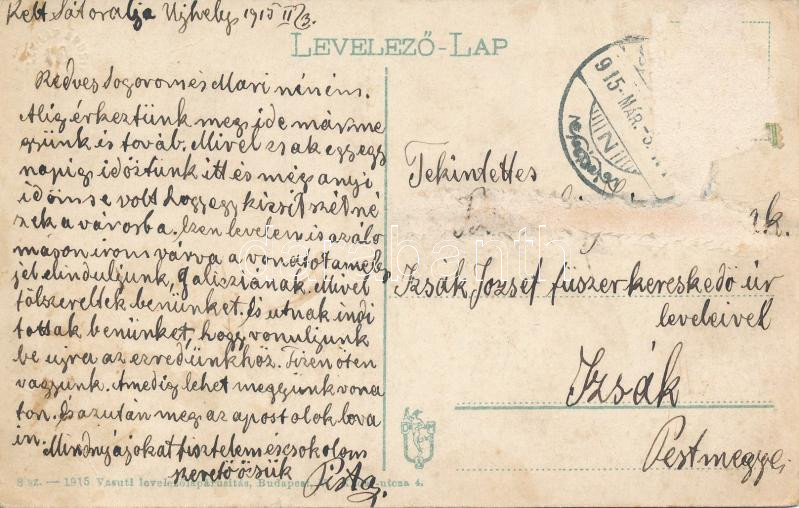 Kelt Sátoralja Ujhely 1915 II/3.
LEVELEZŐ-LAP
Kedves Sogorom és Mari néném.
Alig érkeztünk meg ide már me
gyünk is továb. Mivel csak egy egy
napig időztünk itt és még anyi
időm se volt hogy egy kicsit szét né
zek a városba. Ezen levelem is az álo
máson irom várva a vonatot amely
jel elinduljunk, galisziának, mivel
fölszereltek benünket. És utnak indi
tottak benünket, hogy vonuljunk
be ujra az ezredünkhöz. Tizenöten
vagyunk. Amedig lehet megyünk vona
ton. És azután meg az apostolok lova
in.
Mindnyájokat tisztelem és csokolom
szerető öcsük Pista.
915-MÁR.-5.
N
Tekintettes
Izsák József füszerkereskedő úr
leveleivel
Izsák
Pestmegye
8 sz. — 1915 Vasuti levelezőlapárusitás, Budapest, utcza 4.